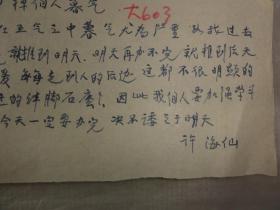 得個人暮气 大603
在五气之中暮气尤为严重 如我过去
就推到明天、明天再办不完 就推到后天
每每走到人的后边 这都不很明显的
进的绊脚石么! 因此我個人要加强学习
今天一定要办完 决不諉于明天
許海仙